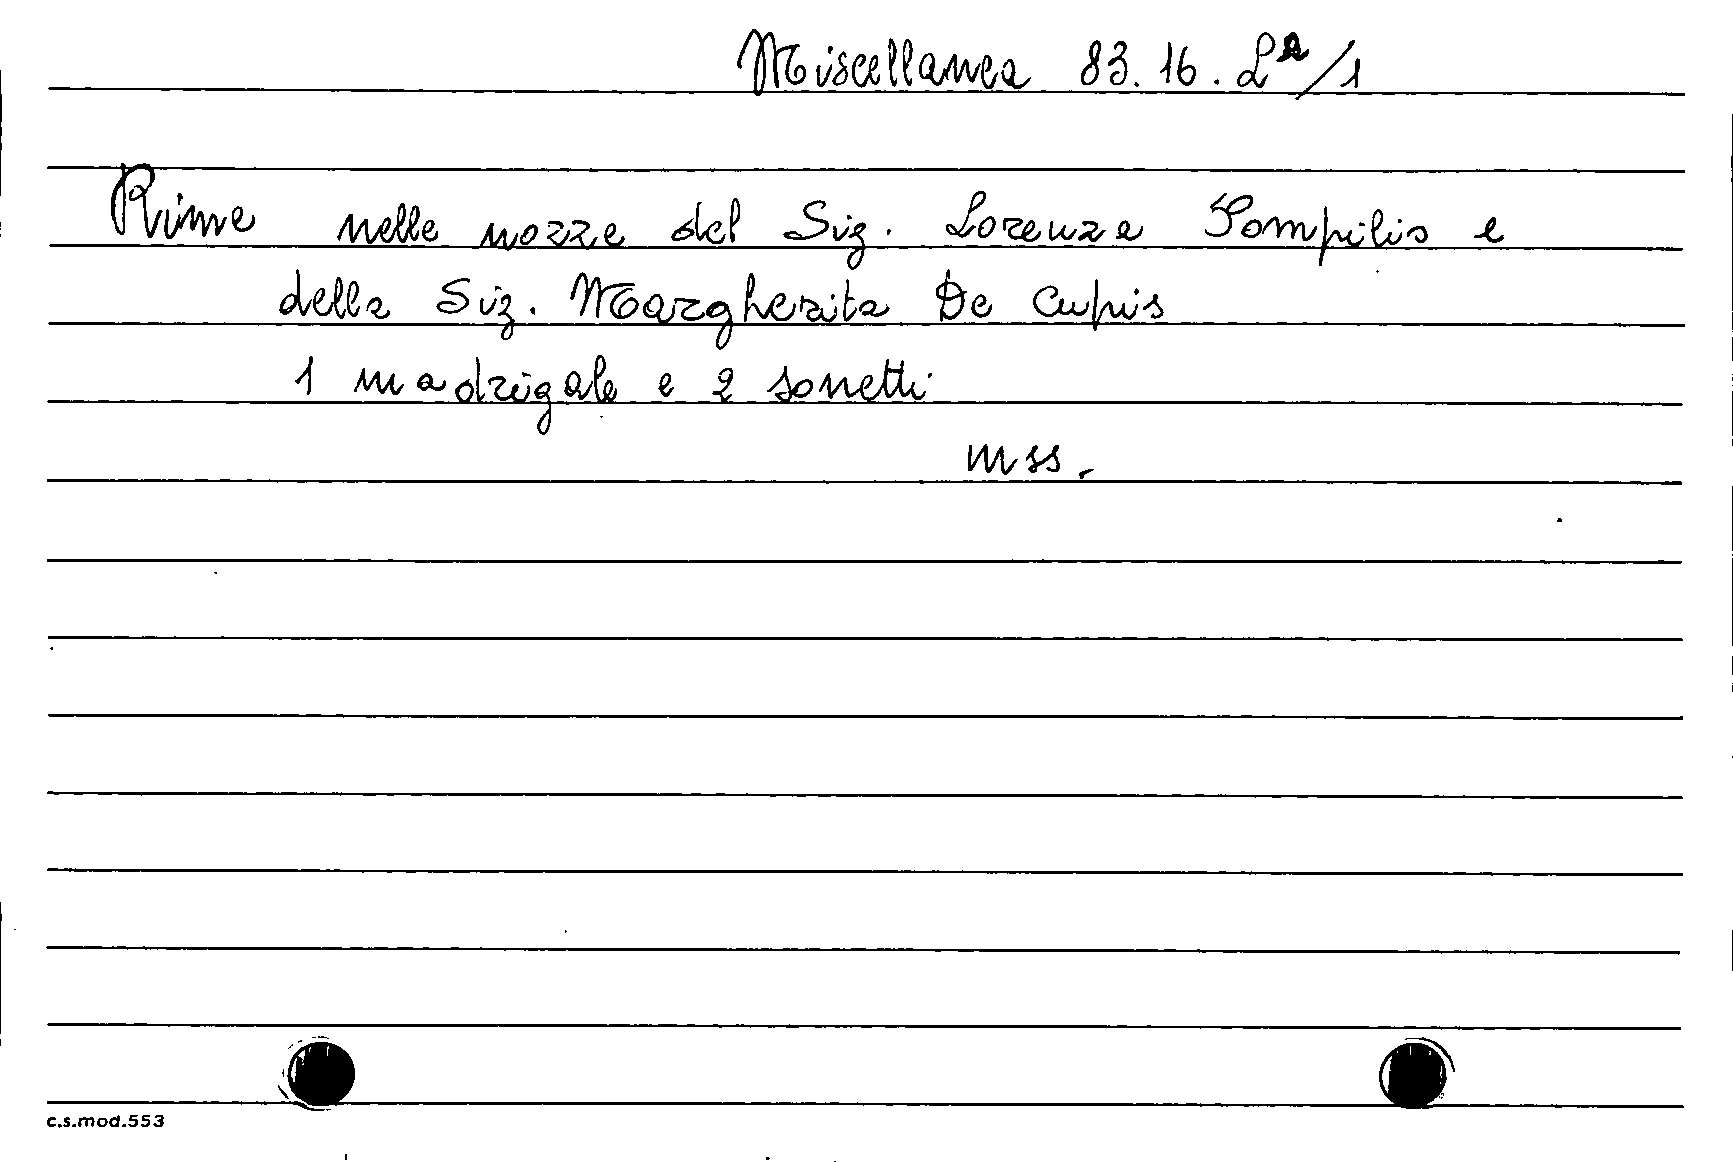 Miscellanea 83.16.La/1
Rime nelle nozze del Sig. Lorenza Pompilis e
della Sig. Margherita De Cupis
1 madrigale e 2 sonetti
mss.
c.s.mod.553